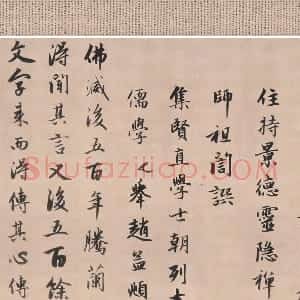 住持景德靈隱禪
師祖誾譔
集賢直學士朝列大
儒學提舉趙孟頫
佛滅後五百年騰蘭
得聞其言又後五百餘
文字來而得傳其心傳
Shufaziliao.com